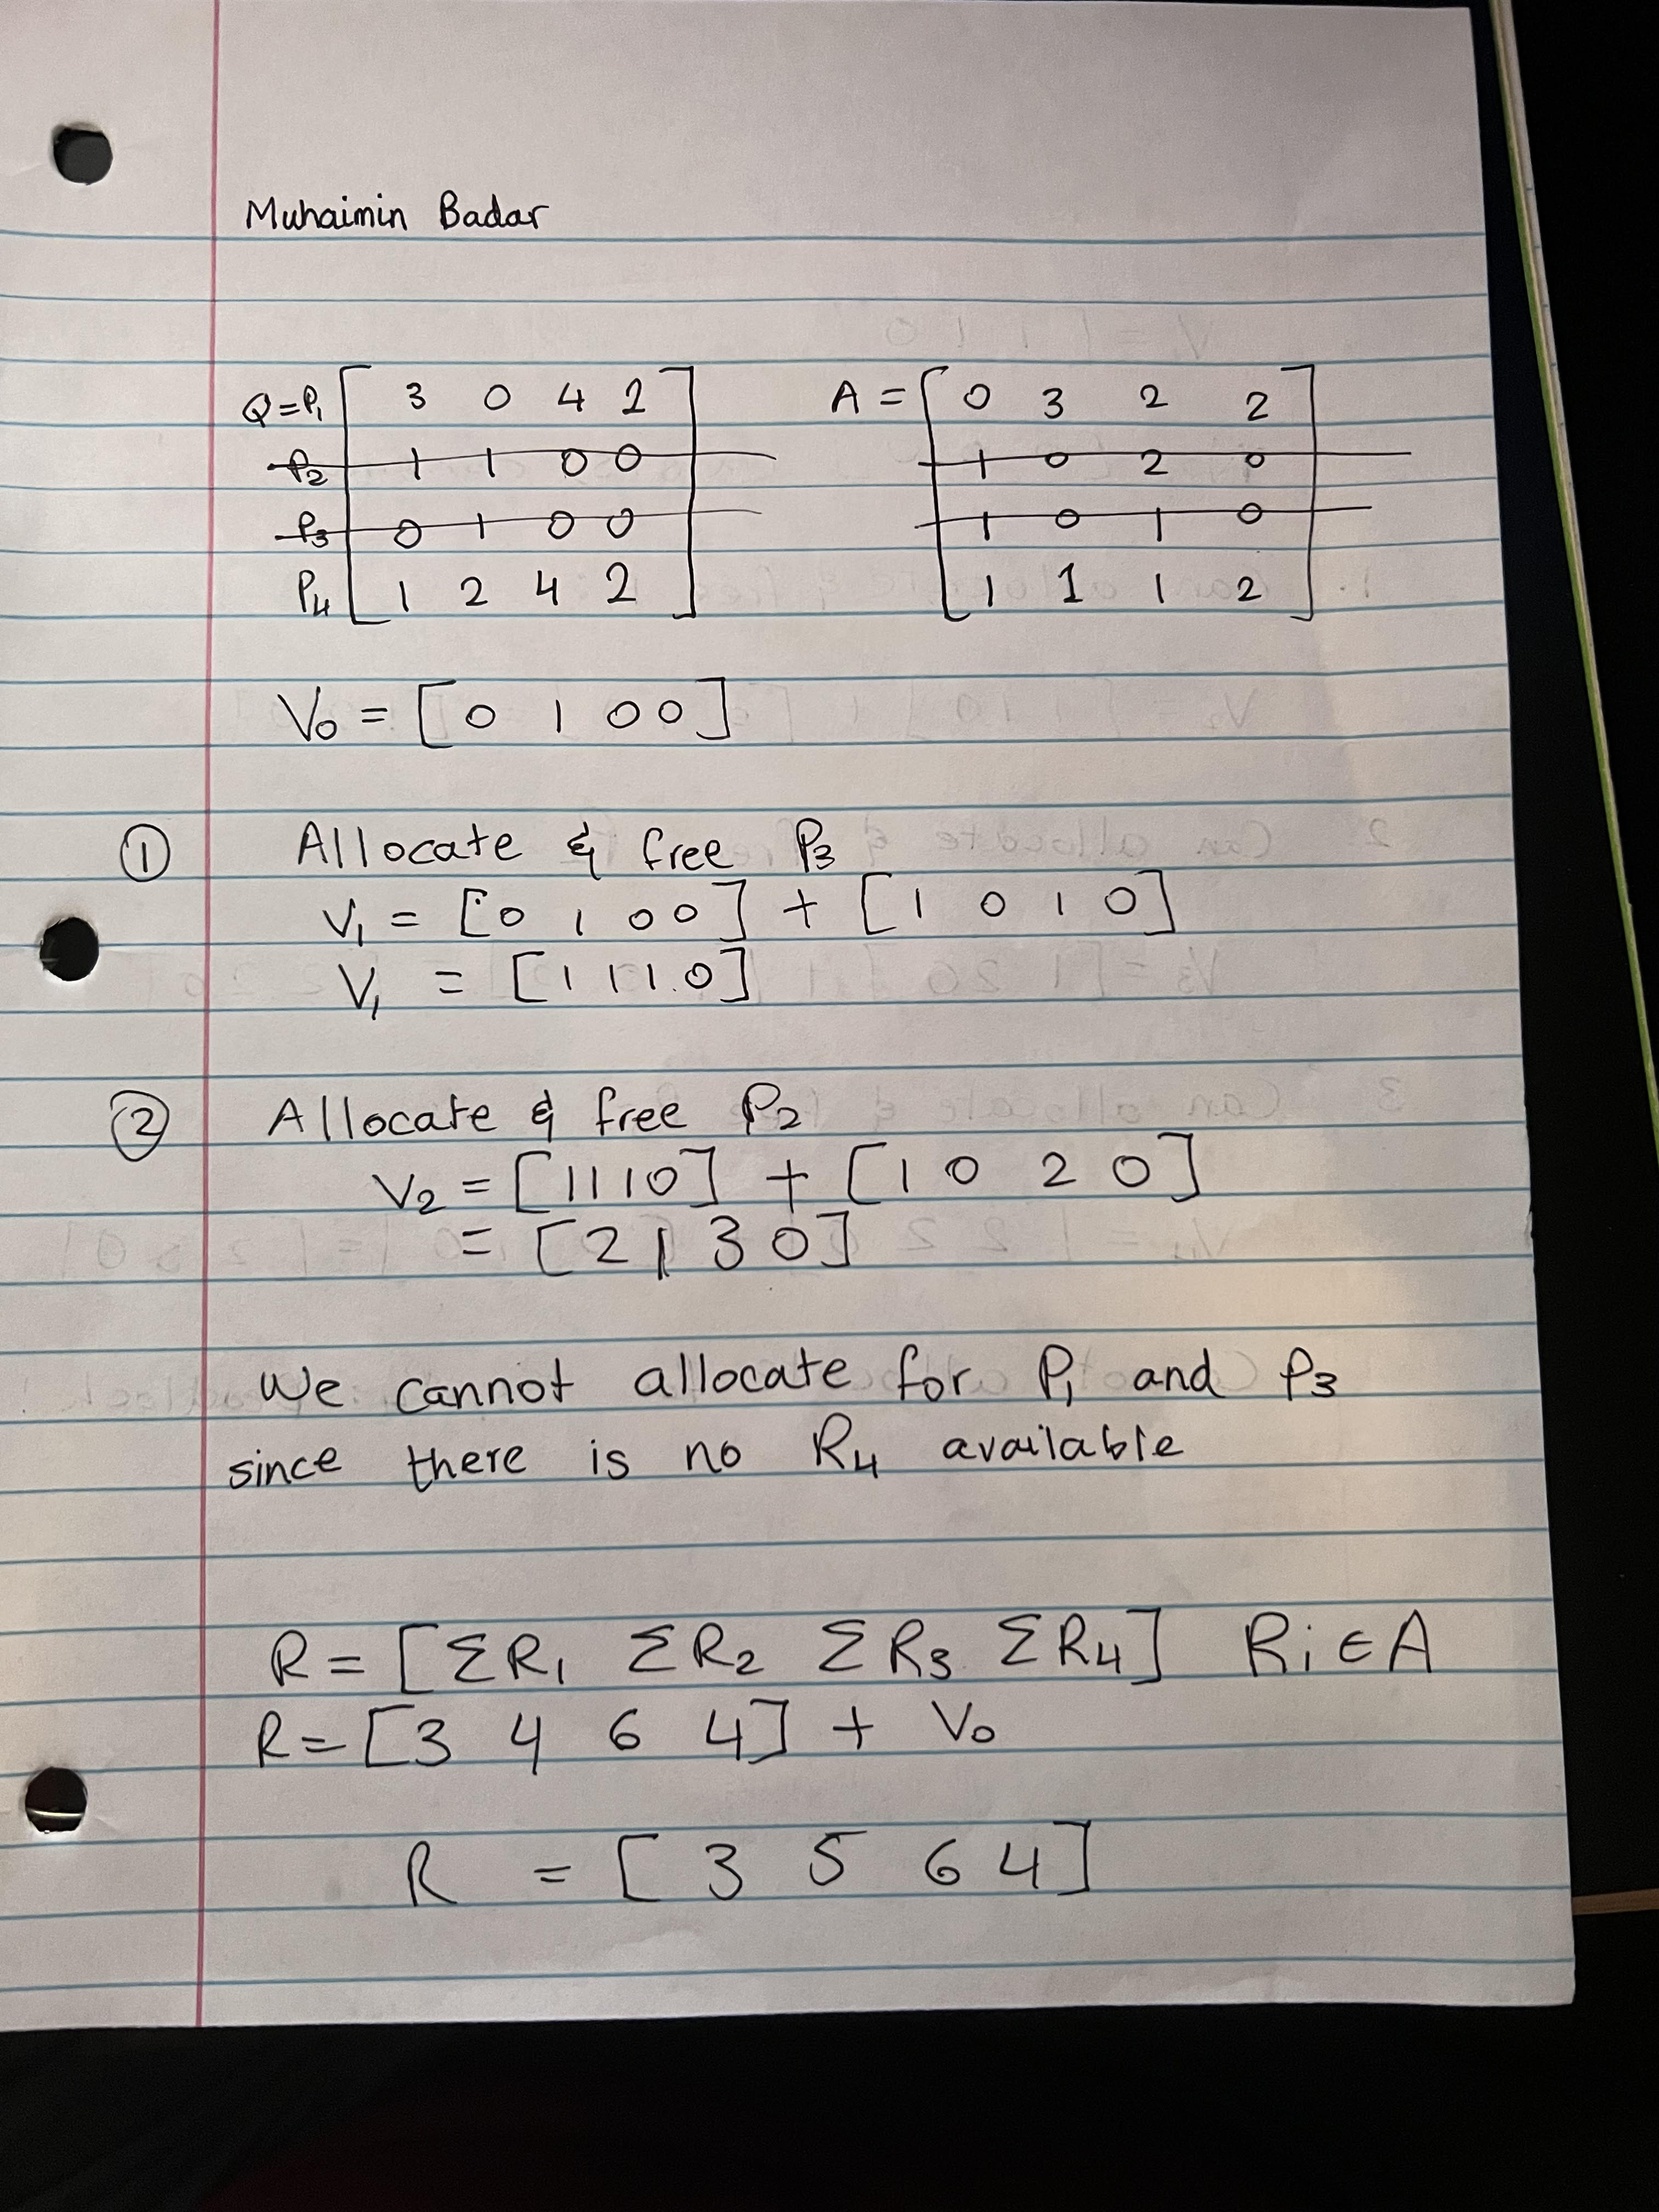 Muhaimin Badar
Q=P1 [ 3 0 4 2 ] A = [ 0 3 2 2 ]
P2 1 1 0 0 1 0 2 0
P3 0 1 0 0 1 0 1 0
P4 1 2 4 2 1 1 1 2
V0 = [ 0 1 0 0 ]
① Allocate & free P3
V1 = [ 0 1 0 0 ] + [ 1 0 1 0 ]
V1 = [ 1 1 1 0 ]
② Allocate & free P2
V2 = [ 1 1 1 0 ] + [ 1 0 2 0 ]
= [ 2 1 3 0 ]
We cannot allocate for P1 and P3
since there is no R4 available
R = [ ΣR1 ΣR2 ΣR3 ΣR4 ] Ri ∈ A
R = [ 3 4 6 4 ] + V0
R = [ 3 5 6 4 ]